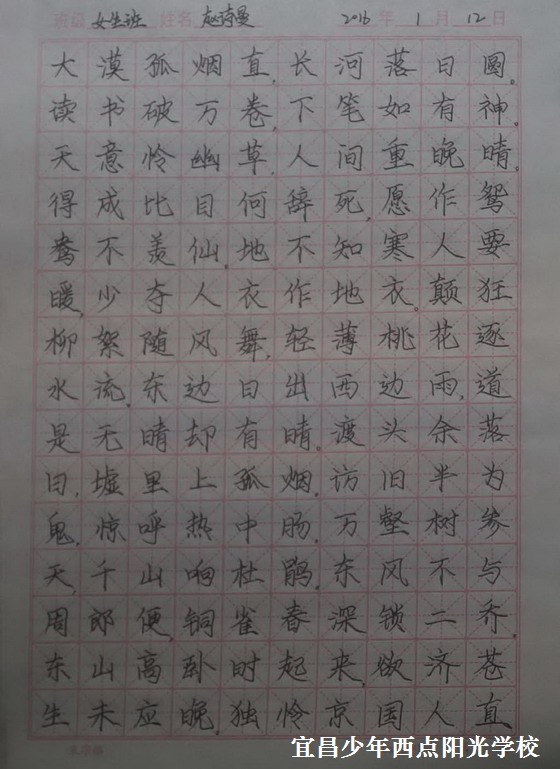 班级 女生班 姓名 赵诗曼 2016 年 1 月 12 日
大漠孤烟直,长河落日圆。
读书破万卷,下笔如有神。
天意怜幽草,人间重晚晴。
得成比目何辞死,愿作鸳
鸯不羡仙。地不知寒人要
暖,少夺人衣作地衣。颠狂
柳絮随风舞,轻薄桃花逐
水流。东边日出西边雨,道
是无晴却有晴。渡头余落
日,墟里上孤烟。访旧半为
鬼,惊呼热中肠。万壑树参
天,千山响杜鹃。东风不与
周郎便,铜雀春深锁二乔。
东山高卧时起来,欲济苍
生未应晚。独怜京国人直
宜昌少年西点阳光学校